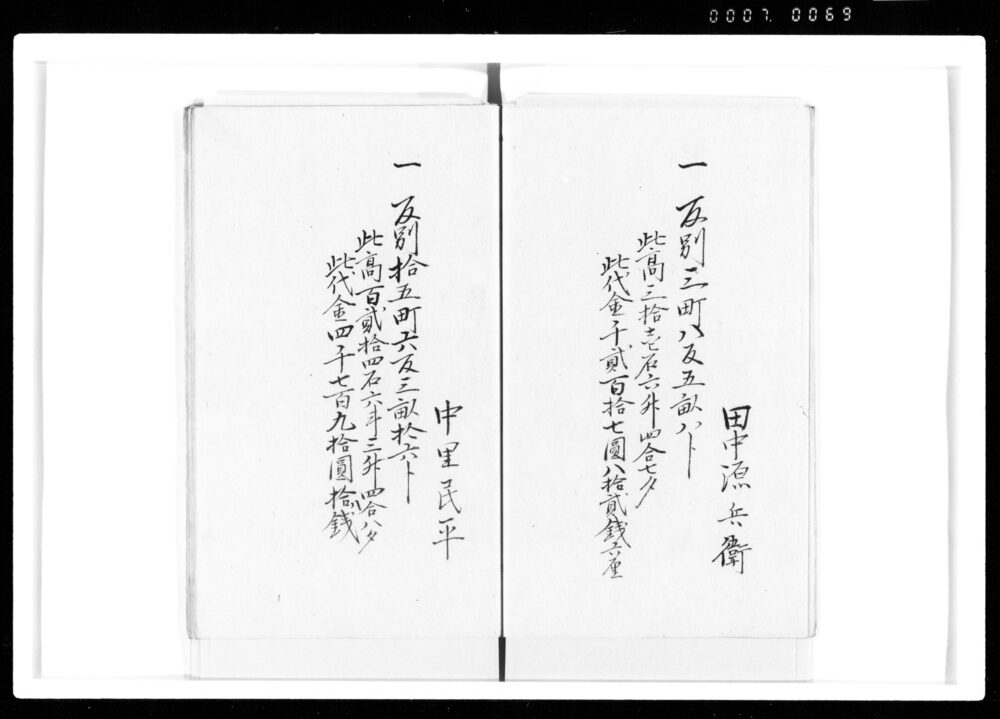 0007. 0069
田中源兵衛
一 反別三町八反五畝八ト
此高三拾壱石六升四合七夕
此代金千貳百拾七圓八拾貳銭六厘
中里民平
一 反別拾五町六反三畝拾六ト
此高百貳拾四石六斗三升四合八夕
此代金四千七百九拾圓拾銭